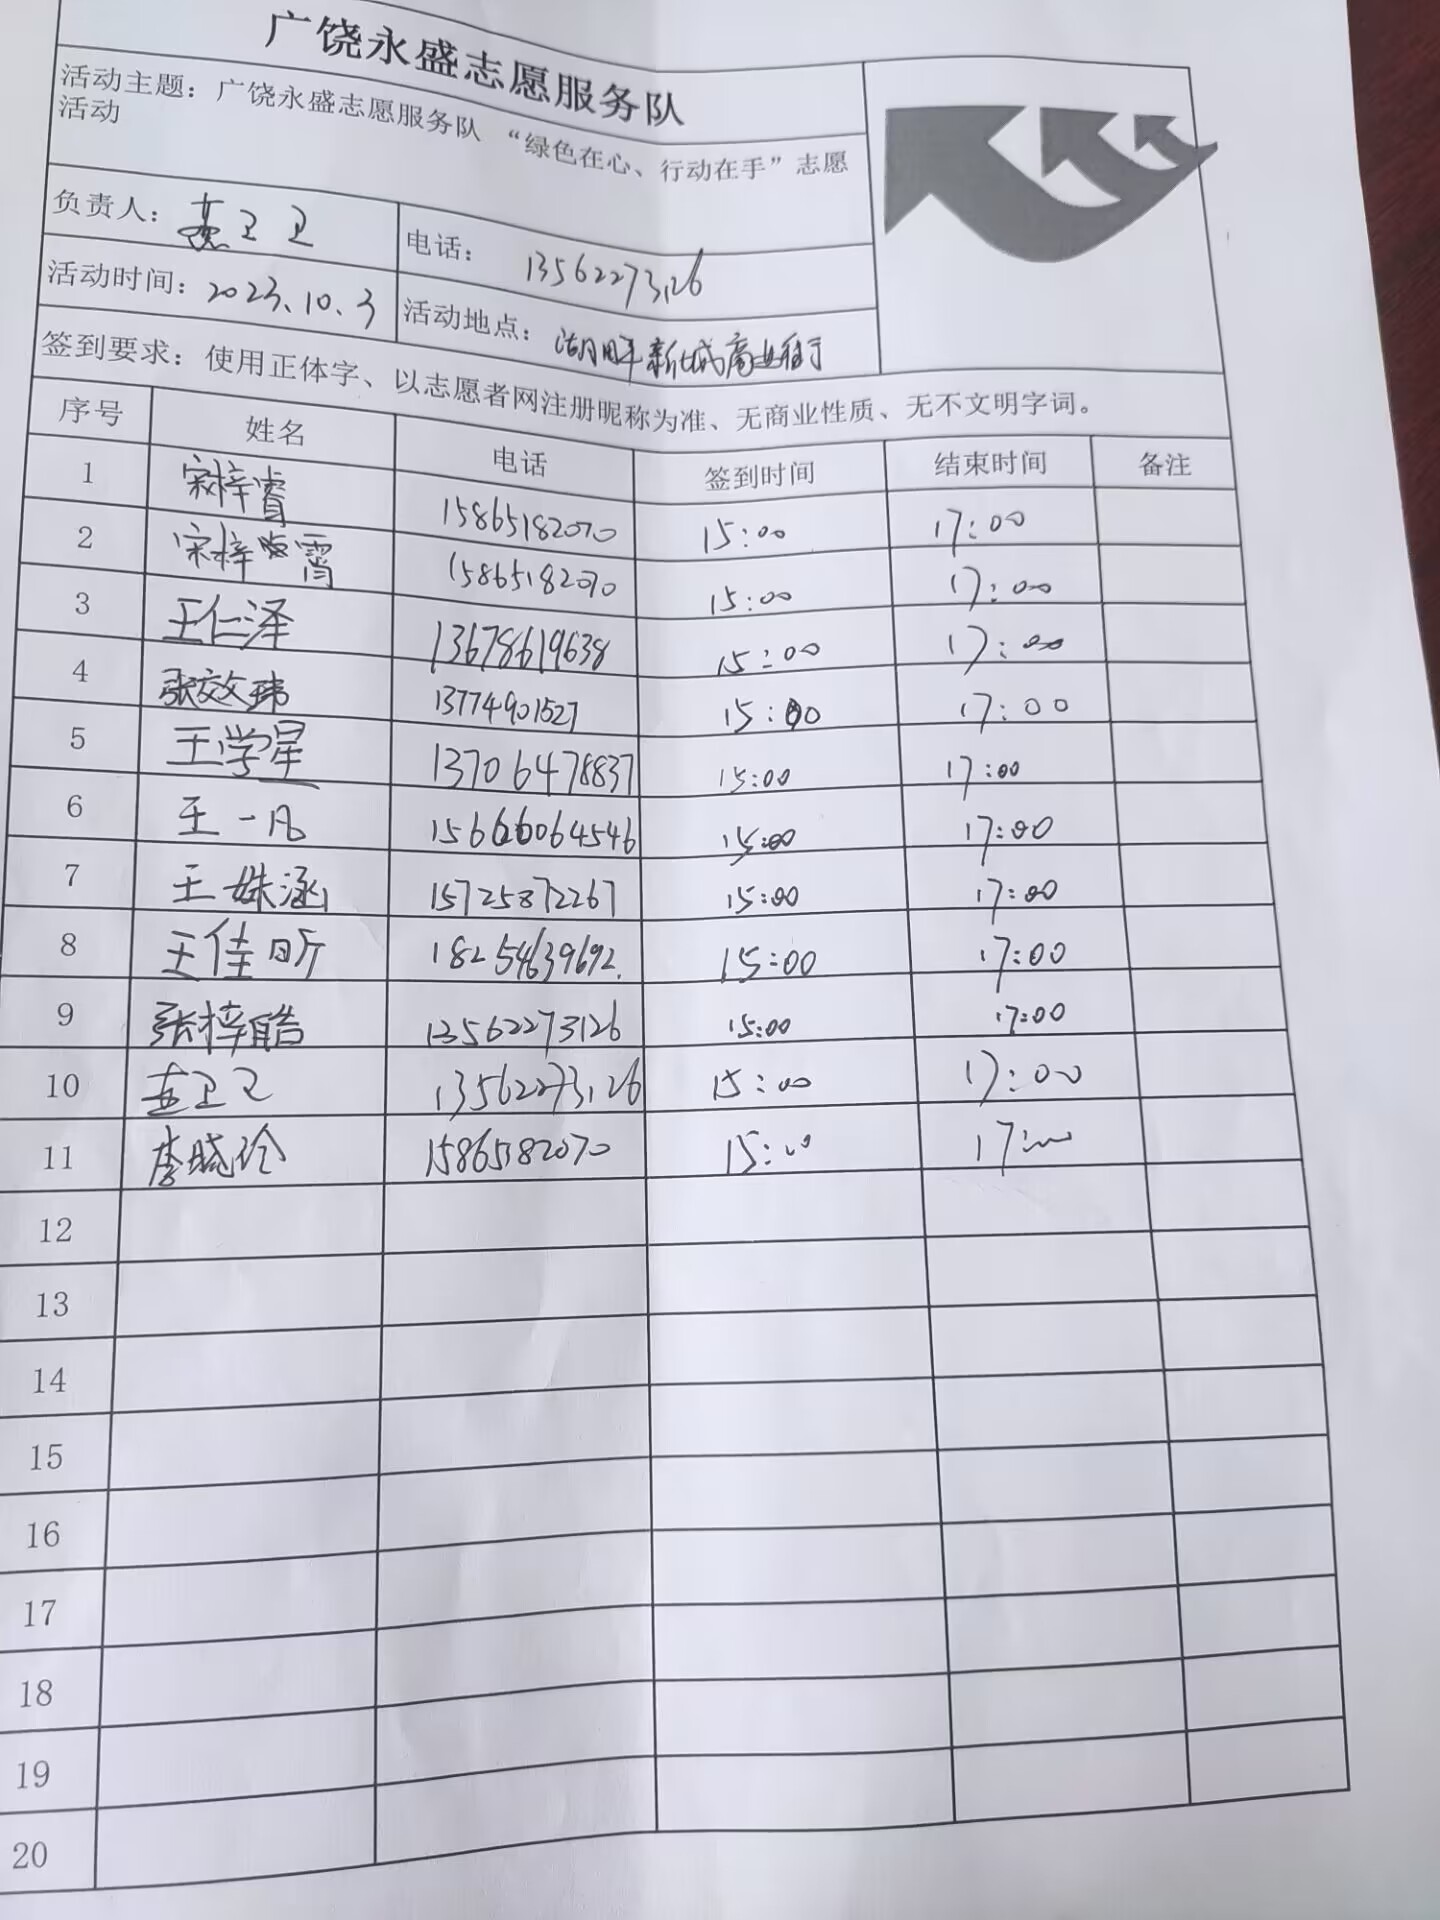 广饶永盛志愿服务队
活动主题：广饶永盛志愿服务队 “绿色在心、行动在手”志愿
活动
负责人： 燕卫卫 电话： 13562273126
活动时间：2023.10.3 活动地点： 湖畔新城商业街
签到要求：使用正体字、以志愿者网注册昵称为准、无商业性质、无不文明字词。
序号 姓名 电话 签到时间 结束时间 备注
1 宋梓睿 15865182070 15:00 17:00
2 宋梓霄 15865182070 15:00 17:00
3 王仁泽 13678619638 15:00 17:00
4 张效玮 13774901527 15:00 17:00
5 王学星 13706478837 15:00 17:00
6 王一凡 15:00 17:00
7 王姝涵 15725872267 15:00 17:00
8 王佳昕 18254639692. 15:00 17:00
9 张梓皓 13562273126 15:00 17:00
10 燕卫卫 13562273126 15:00 17:00
11 李晓玲 15865182070 15:00 17:00
12
13
14
15
16
17
18
19
20